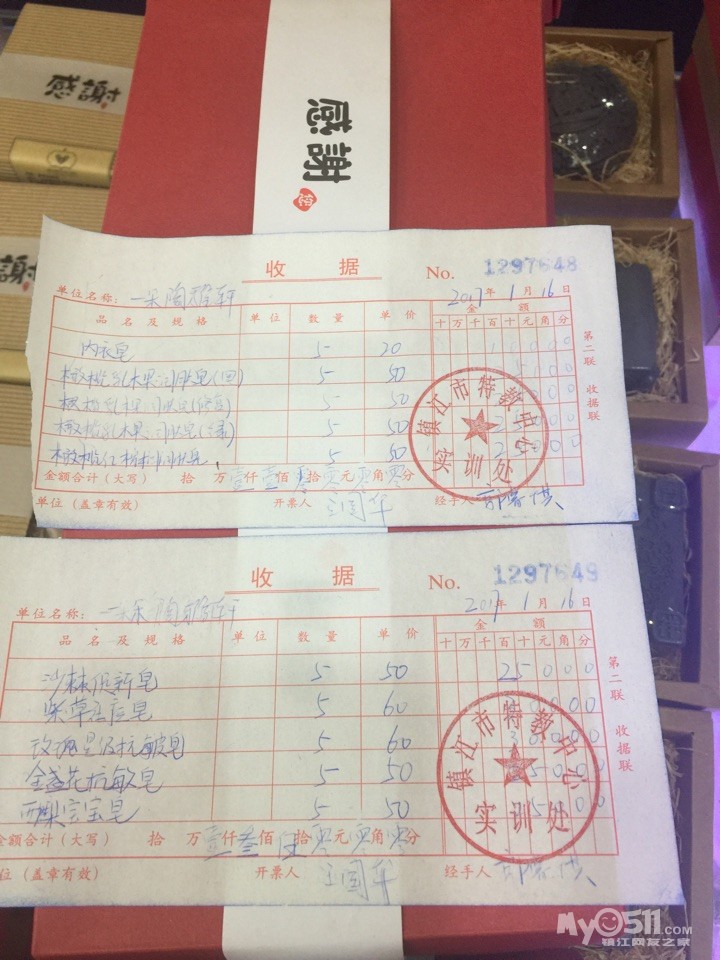 感謝
感謝
感謝
收据
No. 1297648
单位名称：一朵陶雅轩
2017年1月16日
品名及规格 单位 数量 单价 金额
十万千百十元角分
内衣皂 5 20 10000
5 50
5 50
5 50 25000
5 50 25000
金额合计（大写） 拾万壹仟壹佰零拾零元零角零分
单位（盖章有效） 开票人 王国华 经手人
第二联 收据联
镇江市特教中心
实训处
收据
No. 1297649
单位名称：一朵陶雅轩
2017年1月16日
品名及规格 单位 数量 单价 金额
十万千百十元角分
沙棘焕新皂 5 50 25000
紫草 皂 5 60
玫瑰 抗敏皂 5 60
金盏花抗敏皂 5 50
宝宝皂 5 50
金额合计（大写） 拾万壹仟叁佰伍拾零元零角零分
单位（盖章有效） 开票人 王国华 经手人
第二联 收据联
镇江市特教中心
实训处
My0511.COM
镇江网友之家